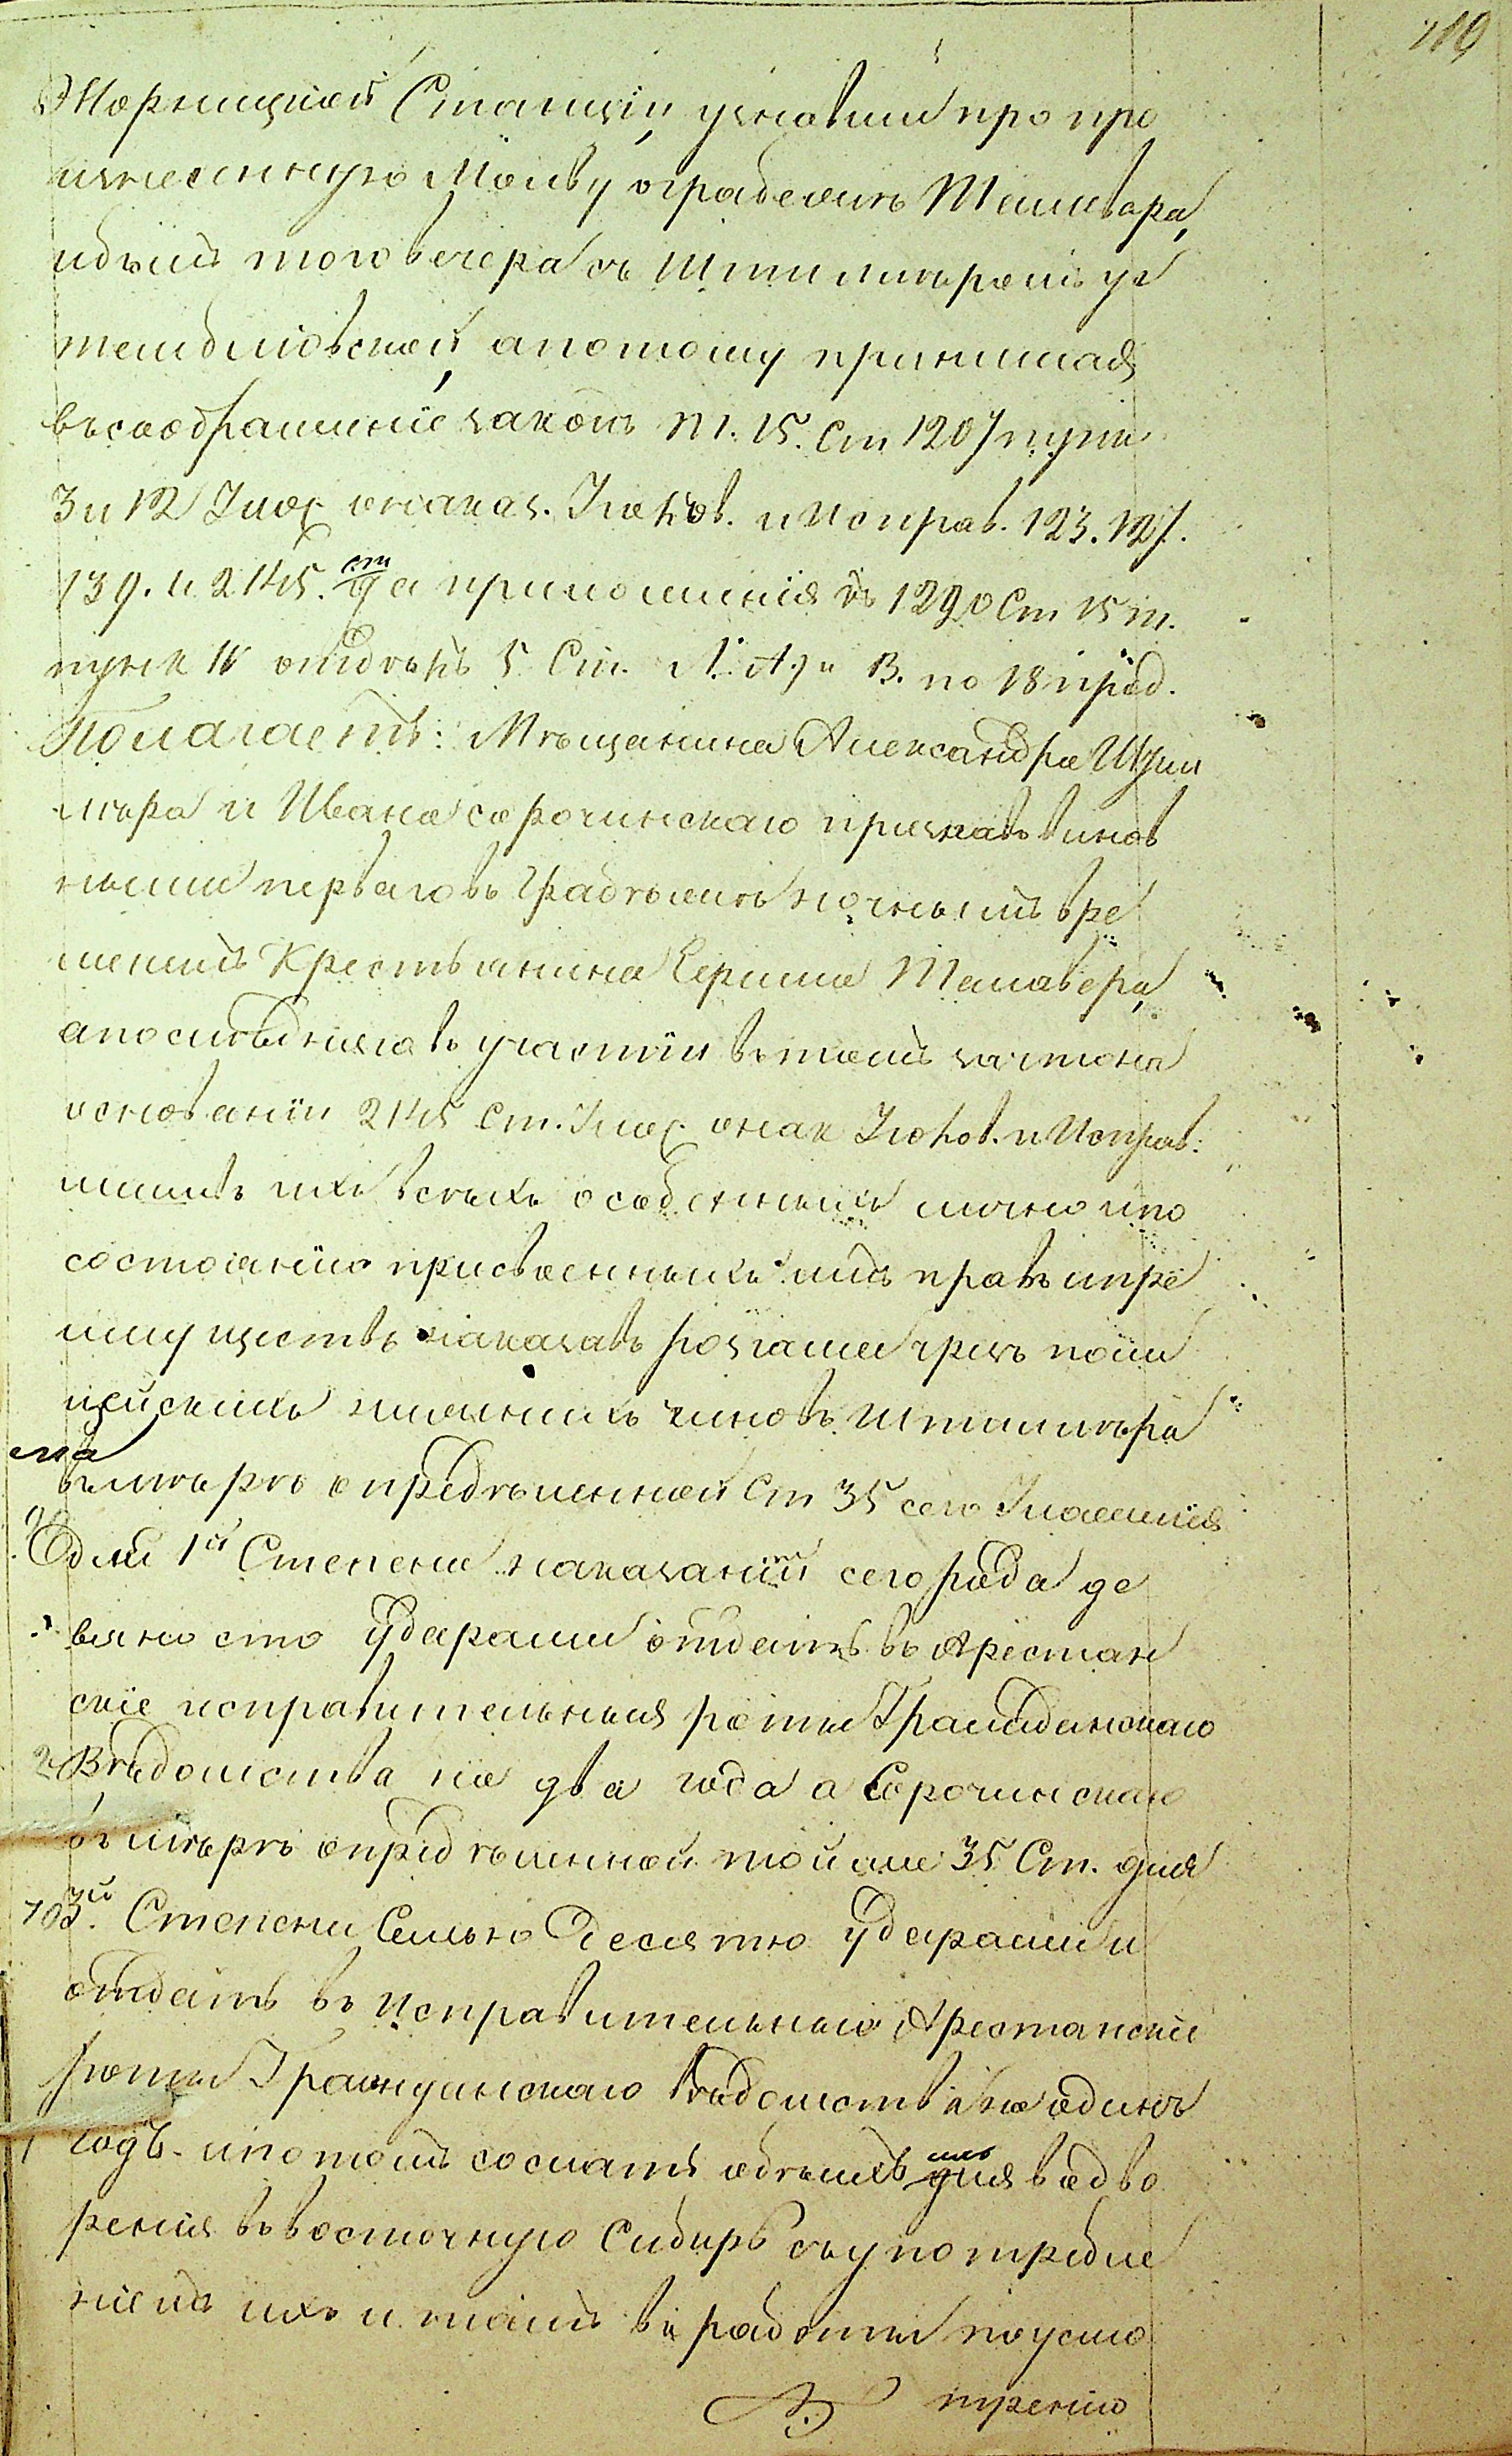 119
Жорницкой Станціи, узнавши про про
изнесенную Молву ограбежѣ Теливара,
идѣти того вечера съ Штиллеромъ уе
а потому принимая
въ соображеніе законъ Т. 15. Ст 1207 пунк
3 и 12 Улож. онаказ. Уголов. и Исправ. 123. 127.
139. и 2145. ст приложенія къ 1290 Ст 15 т.
пунк IV отдѣлъ 5 Ст. Л. А, и В. по 18 прод.
Полагаетъ: Мѣщанина Александра Штил
лера и Ивана Сорочинскаго признавъ винов
ными перваго въ Грабѣжѣ ночнымъ вре
менемъ Крестьянина Герша Теливера,
а послѣдняго въ участіи въ томъ зато на
основаніи 2145 Ст. Улож. онак Уголов. и Исправ.
лишивъ ихъ всѣхъ особенныхъ лично ипо
состоянію присвоенныхъ имъ правъ ипре
имуществъ наказавъ розгами чрезъ поли
цейскихъ нижнихъ чиновъ Штиллера
на
въ мѣрѣ опредѣленной Ст 35 сего Уложенія
для 1й Степени наказаній сего рода де
вяносто ударами отдать въ Арестан
скіе исправительныя роты Гражданскаго
2 Вѣдомства на два года а Сорочинскаго
въ мѣрѣ опредѣленной той же 35 Ст. для
70 3й. Степени Семью Десятью ударами и
отдать въ Исправительныя Арестанскіе
роты Гражданскаго Вѣдомства на одинъ
1 годъ. ипотомъ сослать обѣихъ для водво
ренія въ восточную Сибирь съ употребле
ніемъ ихъ и тамъ въ работы поусмо
тренію